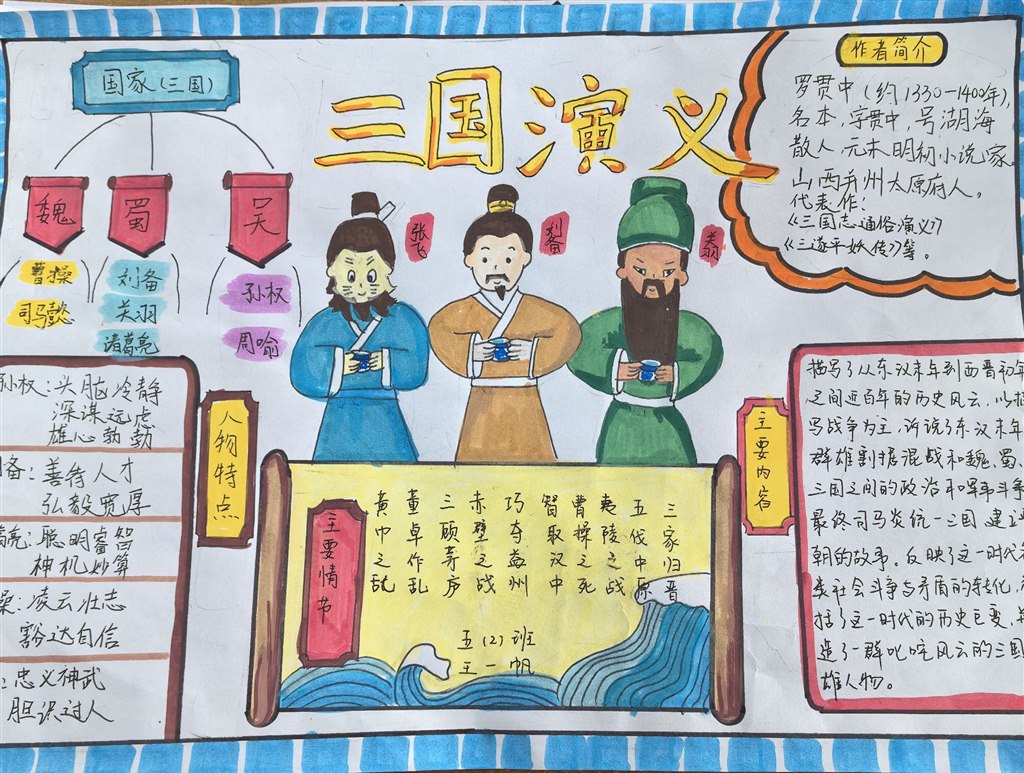 三国演义
国家(三国)
魏
蜀
吴
曹操
司马懿
刘备
关羽
诸葛亮
孙权
周喻
张飞
刘备
关羽
作者简介
罗贯中(约1330-1400年),
名本,字贯中,号湖海
散人,元末明初小说家。
山西并州太原府人。
代表作:
《三国志通俗演义》
《三遂平妖传》等。
人物特点
孙权:头脑冷静
深谋远虑
雄心勃勃
备:善待人才
弘毅宽厚
亮:聪明睿智
神机妙算
操:凌云壮志
豁达自信
:忠义神武
胆识过人
主要情节
黄巾之乱
董卓作乱
三顾茅庐
赤壁之战
巧夺益州
智取汉中
曹操之死
夷陵之战
五伐中原
三家归晋
五(2)班
王一帆
主要内容
描写了从东汉末年到西晋初年
之间近百年的历史风云,以描
写战争为主,诉说了东汉末年
群雄割据混战和魏、蜀、
三国之间的政治和军事斗争
最终司马炎统一三国,建立
朝的故事。反映了三国时代
类社会斗争与矛盾的转化,
括了这一时代的历史巨变,
造了一群叱咤风云的三国
雄人物。